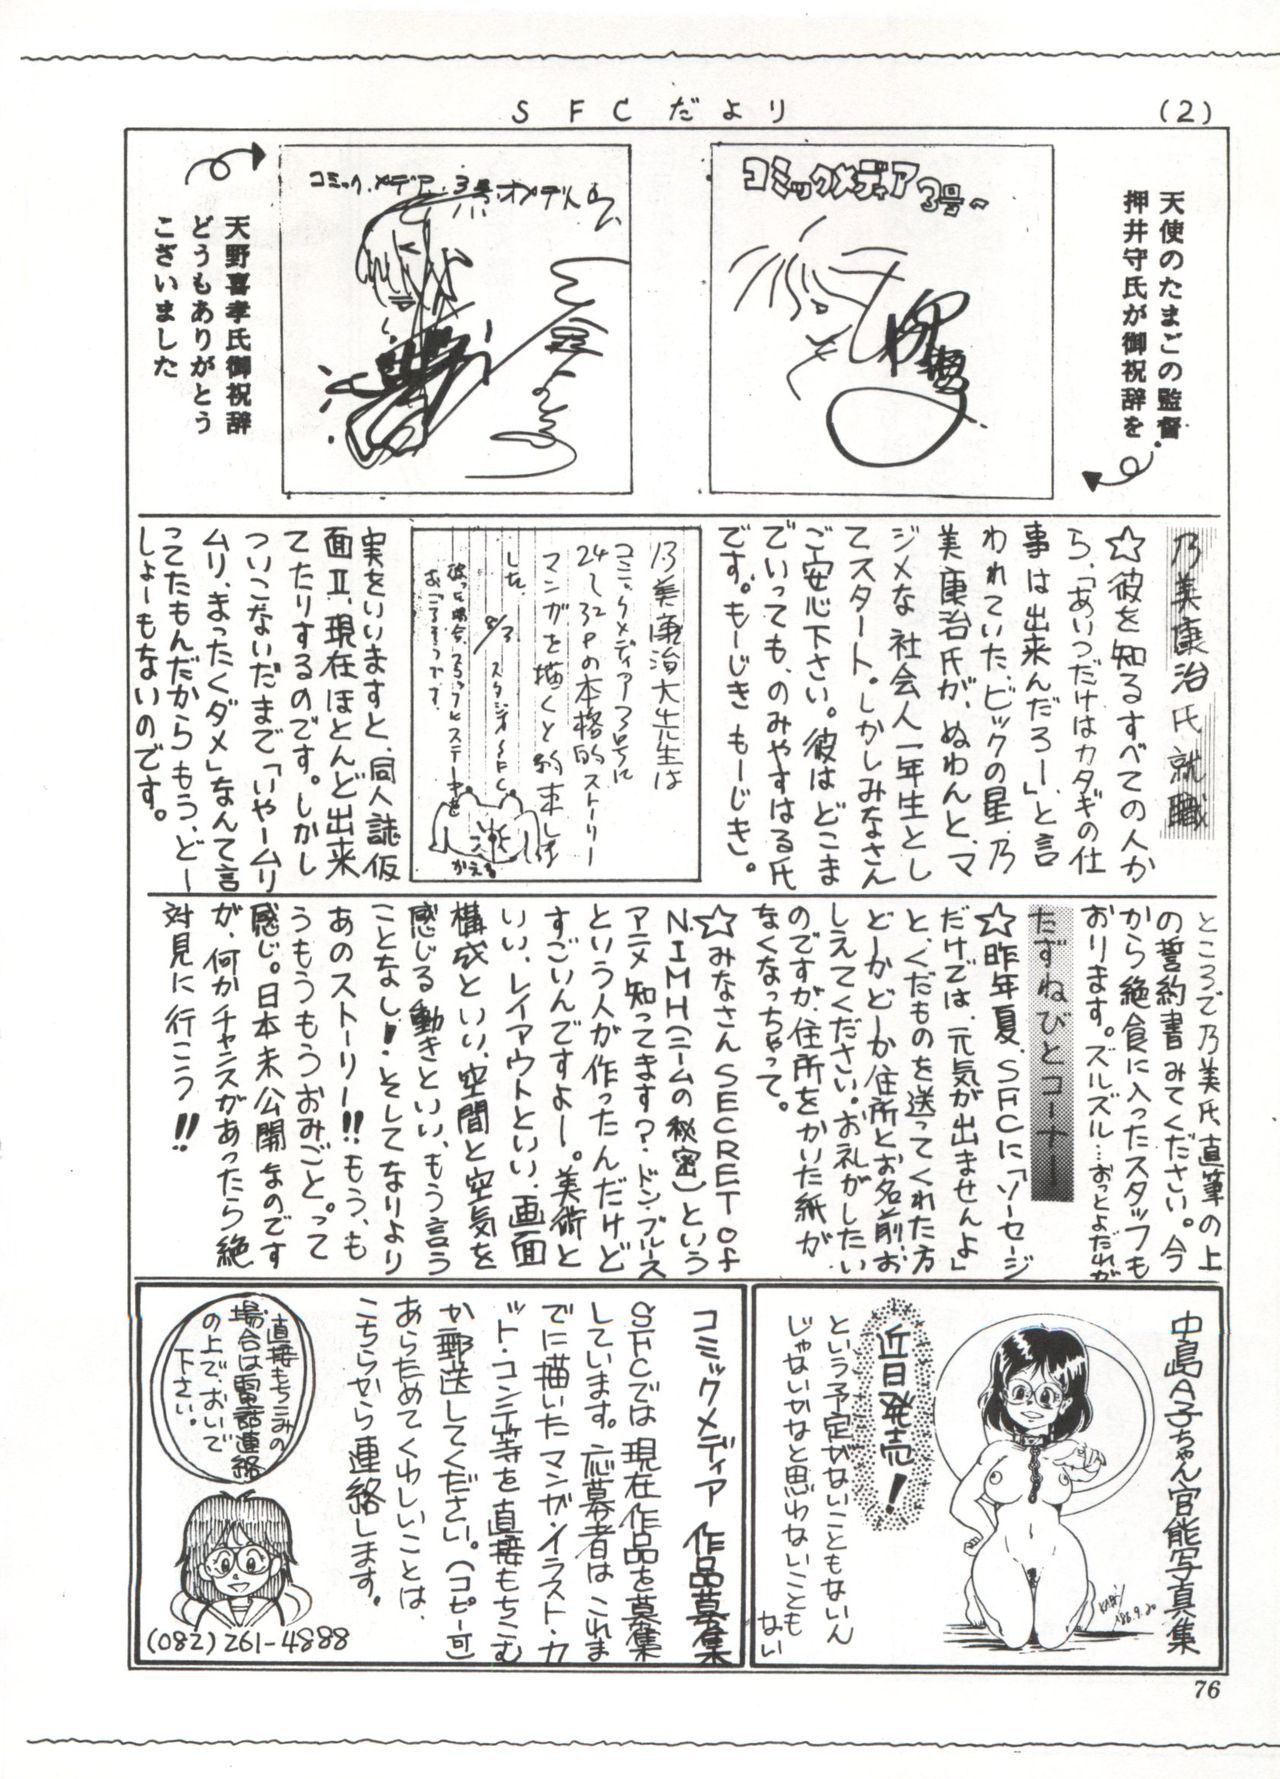 SFCだより
(2)
天使のたまごの監督
押井守氏が御祝辞を
コミックメディア3号〜
コミック.メデア.3号.オメデトウ
天野喜孝氏御祝辞
どうもありがとう
ございました
乃美康治氏就職
☆彼を知るすべての人か
ら、「あいつだけはカタギの仕
事は出来んだろー」と言
われていた、ビックの星、乃
美康治氏が、ぬわんと、マ
ジメな社会人一年生とし
てスタート。しかしみなさん
ご安心下さい。彼はどこま
でいっても、のみやすはる氏
です。もーじきもーじき。
乃美康治大先生は
コミックメディア3号に
24〜32Pの本格的ストーリー
マンガを描くと約束しま
した。
8/3 スタジオSFC
破った場合、スタッフにステーキを
おごるそうです。
かえる
実をいいますと、同人誌仮
面Ⅱ、現在ほとんど出来
てたりするのです。しかし
ついこないだまで「いやームリ
ムリ、まったくダメ」なんて言
ってたもんだからもう、どー
しょーもないのです。
ところで乃美氏直筆の上
の誓約書みてください。今
から絶食に入ったスタッフも
おります。ズルズル…おっとよだれが
たずねびとコーナー
☆昨年夏、SFCに「ソーセージ
だけでは、元気が出ませんよ」
と、くだものを送ってくれた方
どーかどーか住所とお名前、お
しえてください。お礼がしたい
のですが、住所をかいた紙が
なくなっちゃって。
☆みなさんSECRET of
N.I.M.H(ニームの秘密)という
アニメ知ってます?ドン・ブルース
という人が作ったんだけど
すごいんですよー。美術と
いい、レイアウトといい、画面
構成といい、空間と空気を
感じる動きといい、もう言う
ことなし!そしてなりより
あのストーリー!!もう、も
うもうもうおみごと。って
感じ。日本未公開なのです
が、何かチャンスがあったら絶
対見に行こう!!
中島A子ちゃん官能写真集
KAZY
'86.9.20
近日発売!
という予定がないこともないん
じゃないかなと思わないことも
ない
コミックメディア 作品募集
SFCでは現在作品を募集
しています。応募者はこれま
でに描いたマンガ・イラスト・カ
ット・コンテ等を直接もちこむ
か郵送してください。(コピー可)
あらためてくわしいことは、
こちらから連絡します。
直接もちこみの
場合は電話連絡
の上で、おいで
下さい。
(082)261-4888
76